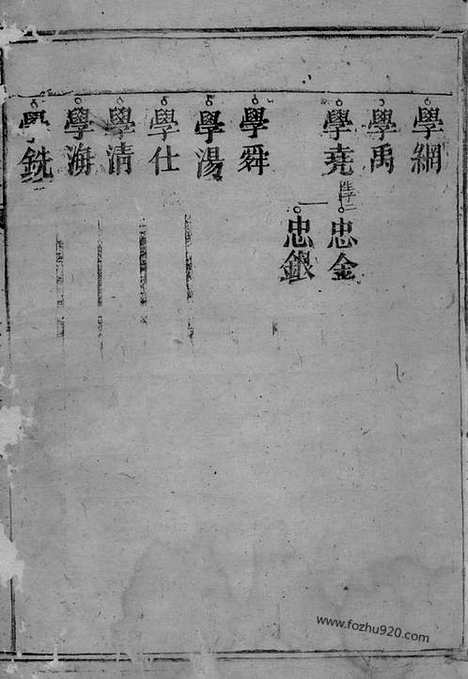 學綱
學禹
學堯
生子二
忠金
忠銀
學舜
學湯
學仕
學清
學海
學銑
www.fozhu920.com